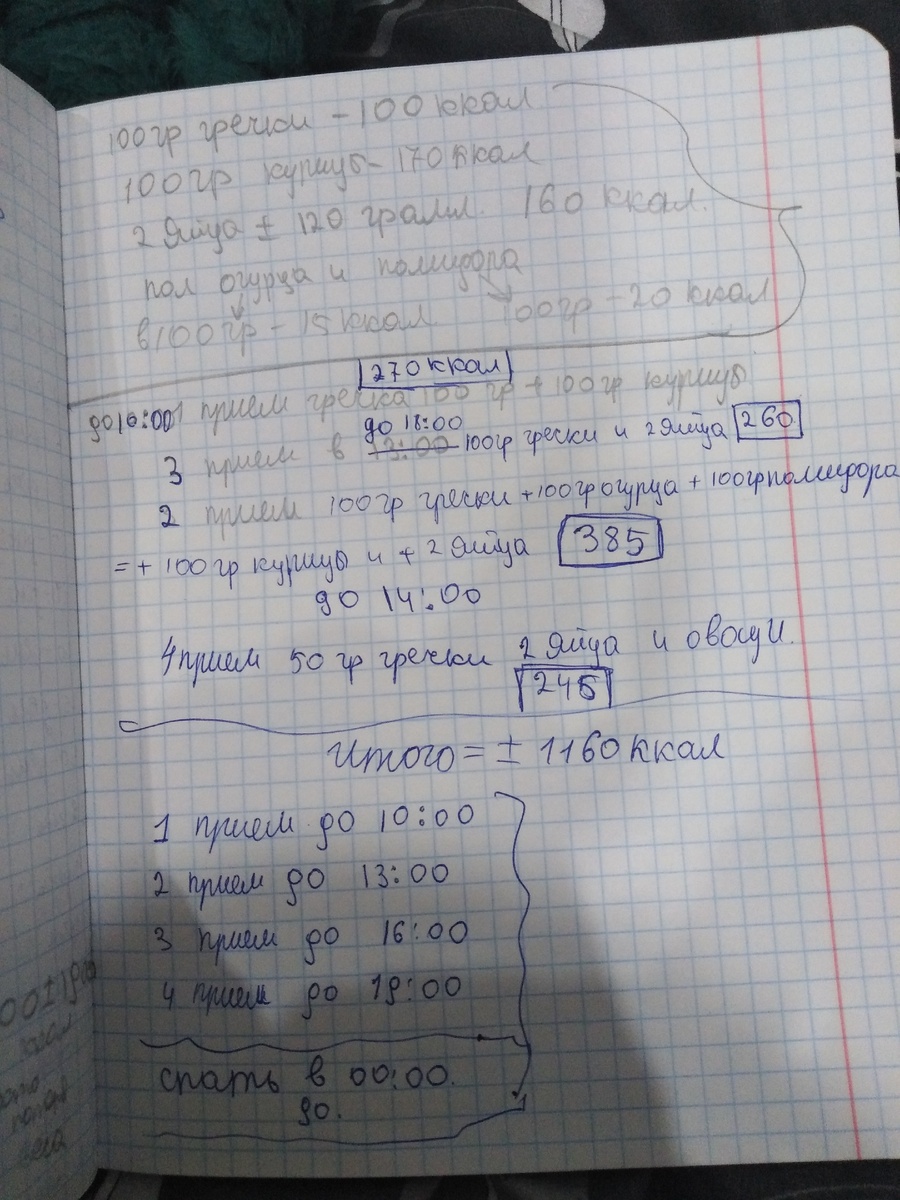 100гр гречки - 100 ккал
100гр курицы - 170 ккал
2 яйца ± 120 грамм. 160 ккал.
пол огурца и помидора
в 100гр - 15 ккал 100гр - 20 ккал
270 ккал
до 10:00 1 прием гречка 100 гр + 100 гр курицы
до 18:00
3 прием в 13:00 100гр гречки и 2 яйца 260
2 прием 100гр гречки + 100гр огурца + 100гр помидора
= + 100 гр курицы и + 2 яйца 385
до 14:00
4 прием 50 гр гречки 2 яйца и овощи.
245
Итого = ± 1160 ккал
1 прием до 10:00
2 прием до 13:00
3 прием до 16:00
4 прием до 19:00
спать в 00:00.
до.